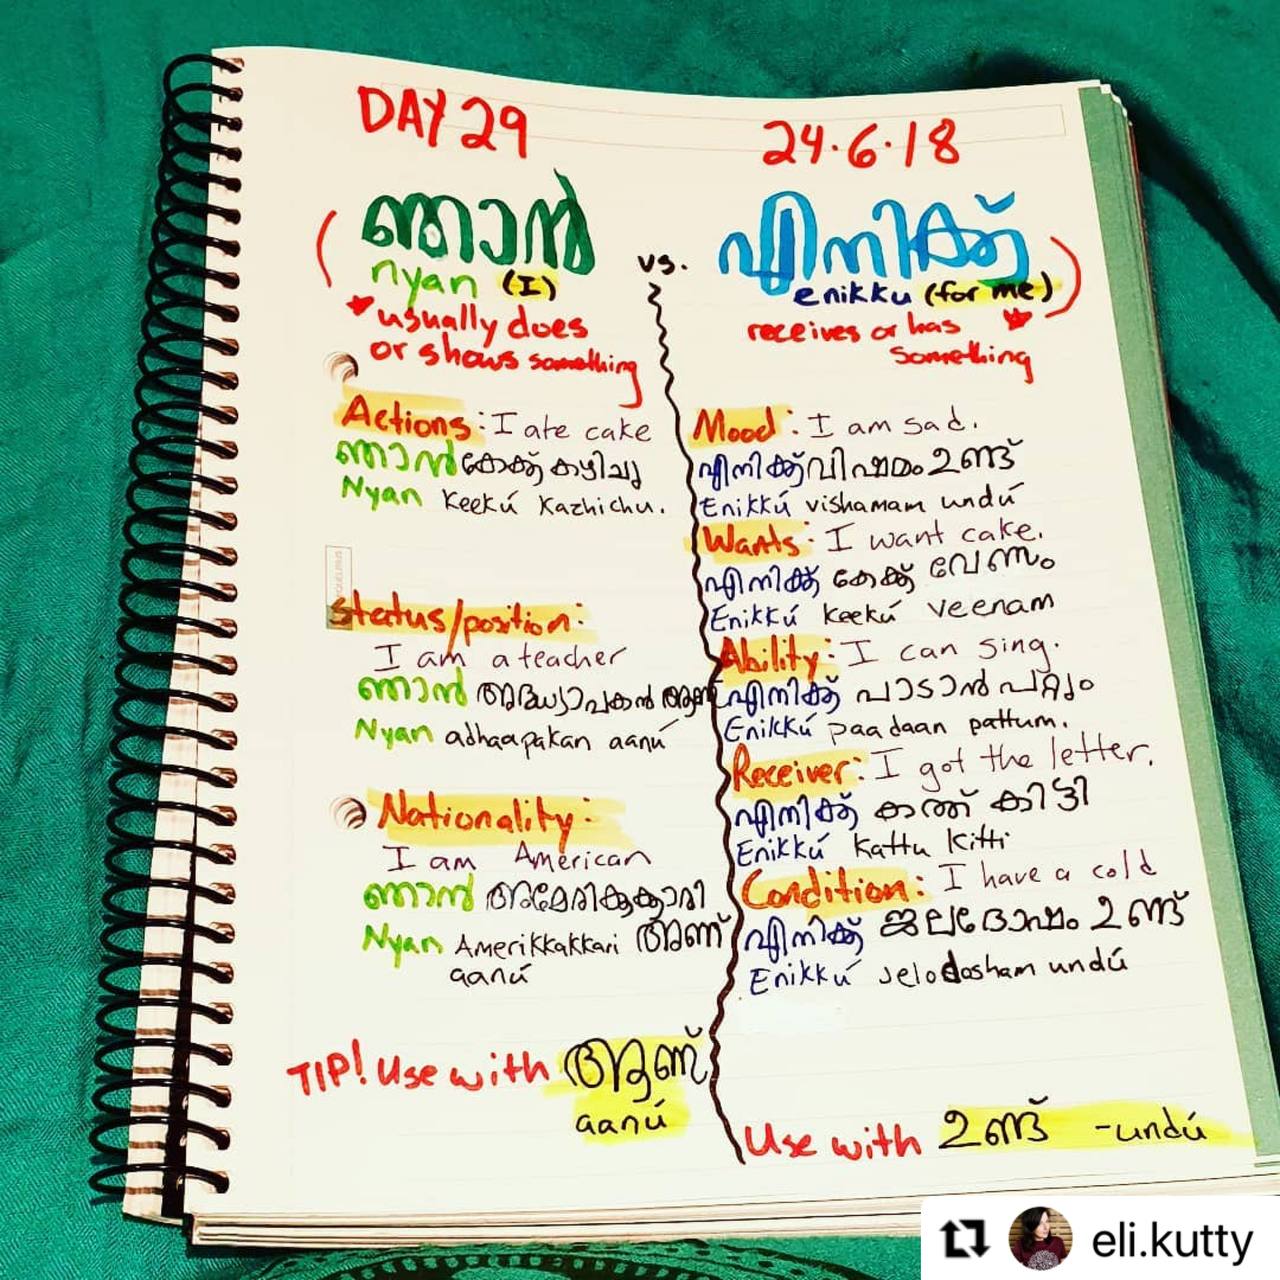 DAY 29
24.6.18
(ഞാൻ vs. എനിക്ക്)
nyan (I)
enikku (for me)
*usually does
or shows something
receives or has
something
Actions: I ate cake
ഞാൻ കേക്ക് കഴിച്ചു
Nyan Keekú Kazhichu.
Status/position:
I am a teacher
ഞാൻ ആണ്
Nyan adhaapakan aanú
Nationality:
I am American
ഞാൻ അമേരിക്കക്കാരി
Nyan Amerikkakkari ആണ്
aanú
TIP! Use with ആണ്
aanú
Mood: I am sad.
എനിക്ക് വിഷമം ഉണ്ട്
Enikkú vishamam undú
Wants: I want cake.
എനിക്ക് കേക്ക് വേണം
Enikkú keekú veenam
Ability: I can sing.
എനിക്ക് പാടാൻ പറ്റും
Enikkú paadaan pattum.
Receiver: I got the letter.
എനിക്ക് കത്ത് കിട്ടി
Enikkú Kattu Kitti
Condition: I have a cold
എനിക്ക് ജലദോഷം ഉണ്ട്
Enikkú Jelodosham undú
Use with ഉണ്ട് -undú
eli.kutty